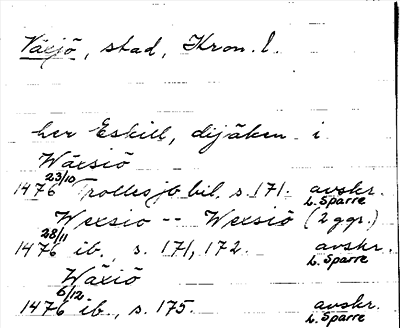 Växjö, stad, Kron. l.
her Eskill, dijäken i
Wäxsiö
1476 23/10 Trollesjöbil. s. 171. avskr. L. Sparre
Wexsio -- Wexsiö (2 ggr.)
1476 28/11 ib., s. 171, 172. avskr. L. Sparre
Wäxiö
1476 6/12 ib., s. 175. avskr. L. Sparre